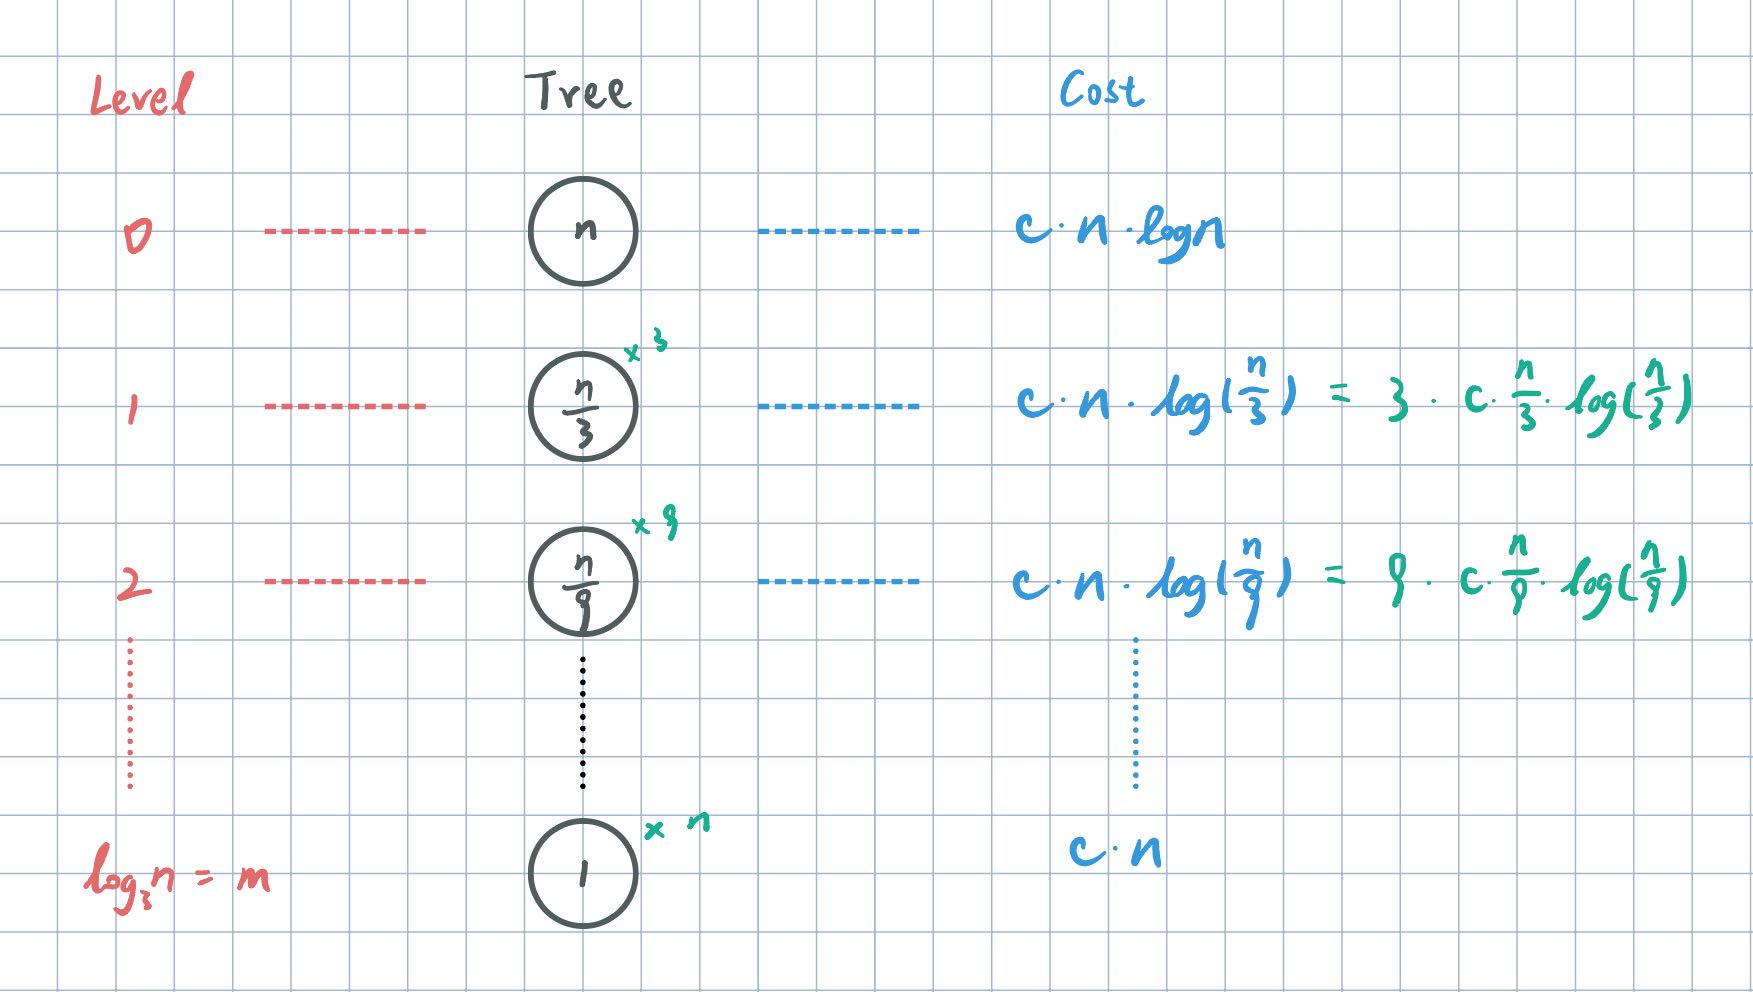 Level Tree Cost
0 n c · n · log n
1 n/3 × 3 c · n · log(n/3) = 3 · c · n/3 · log(n/3)
2 n/9 × 9 c · n · log(n/9) = 9 · c · n/9 · log(n/9)
log₃n = m 1 × n c · n